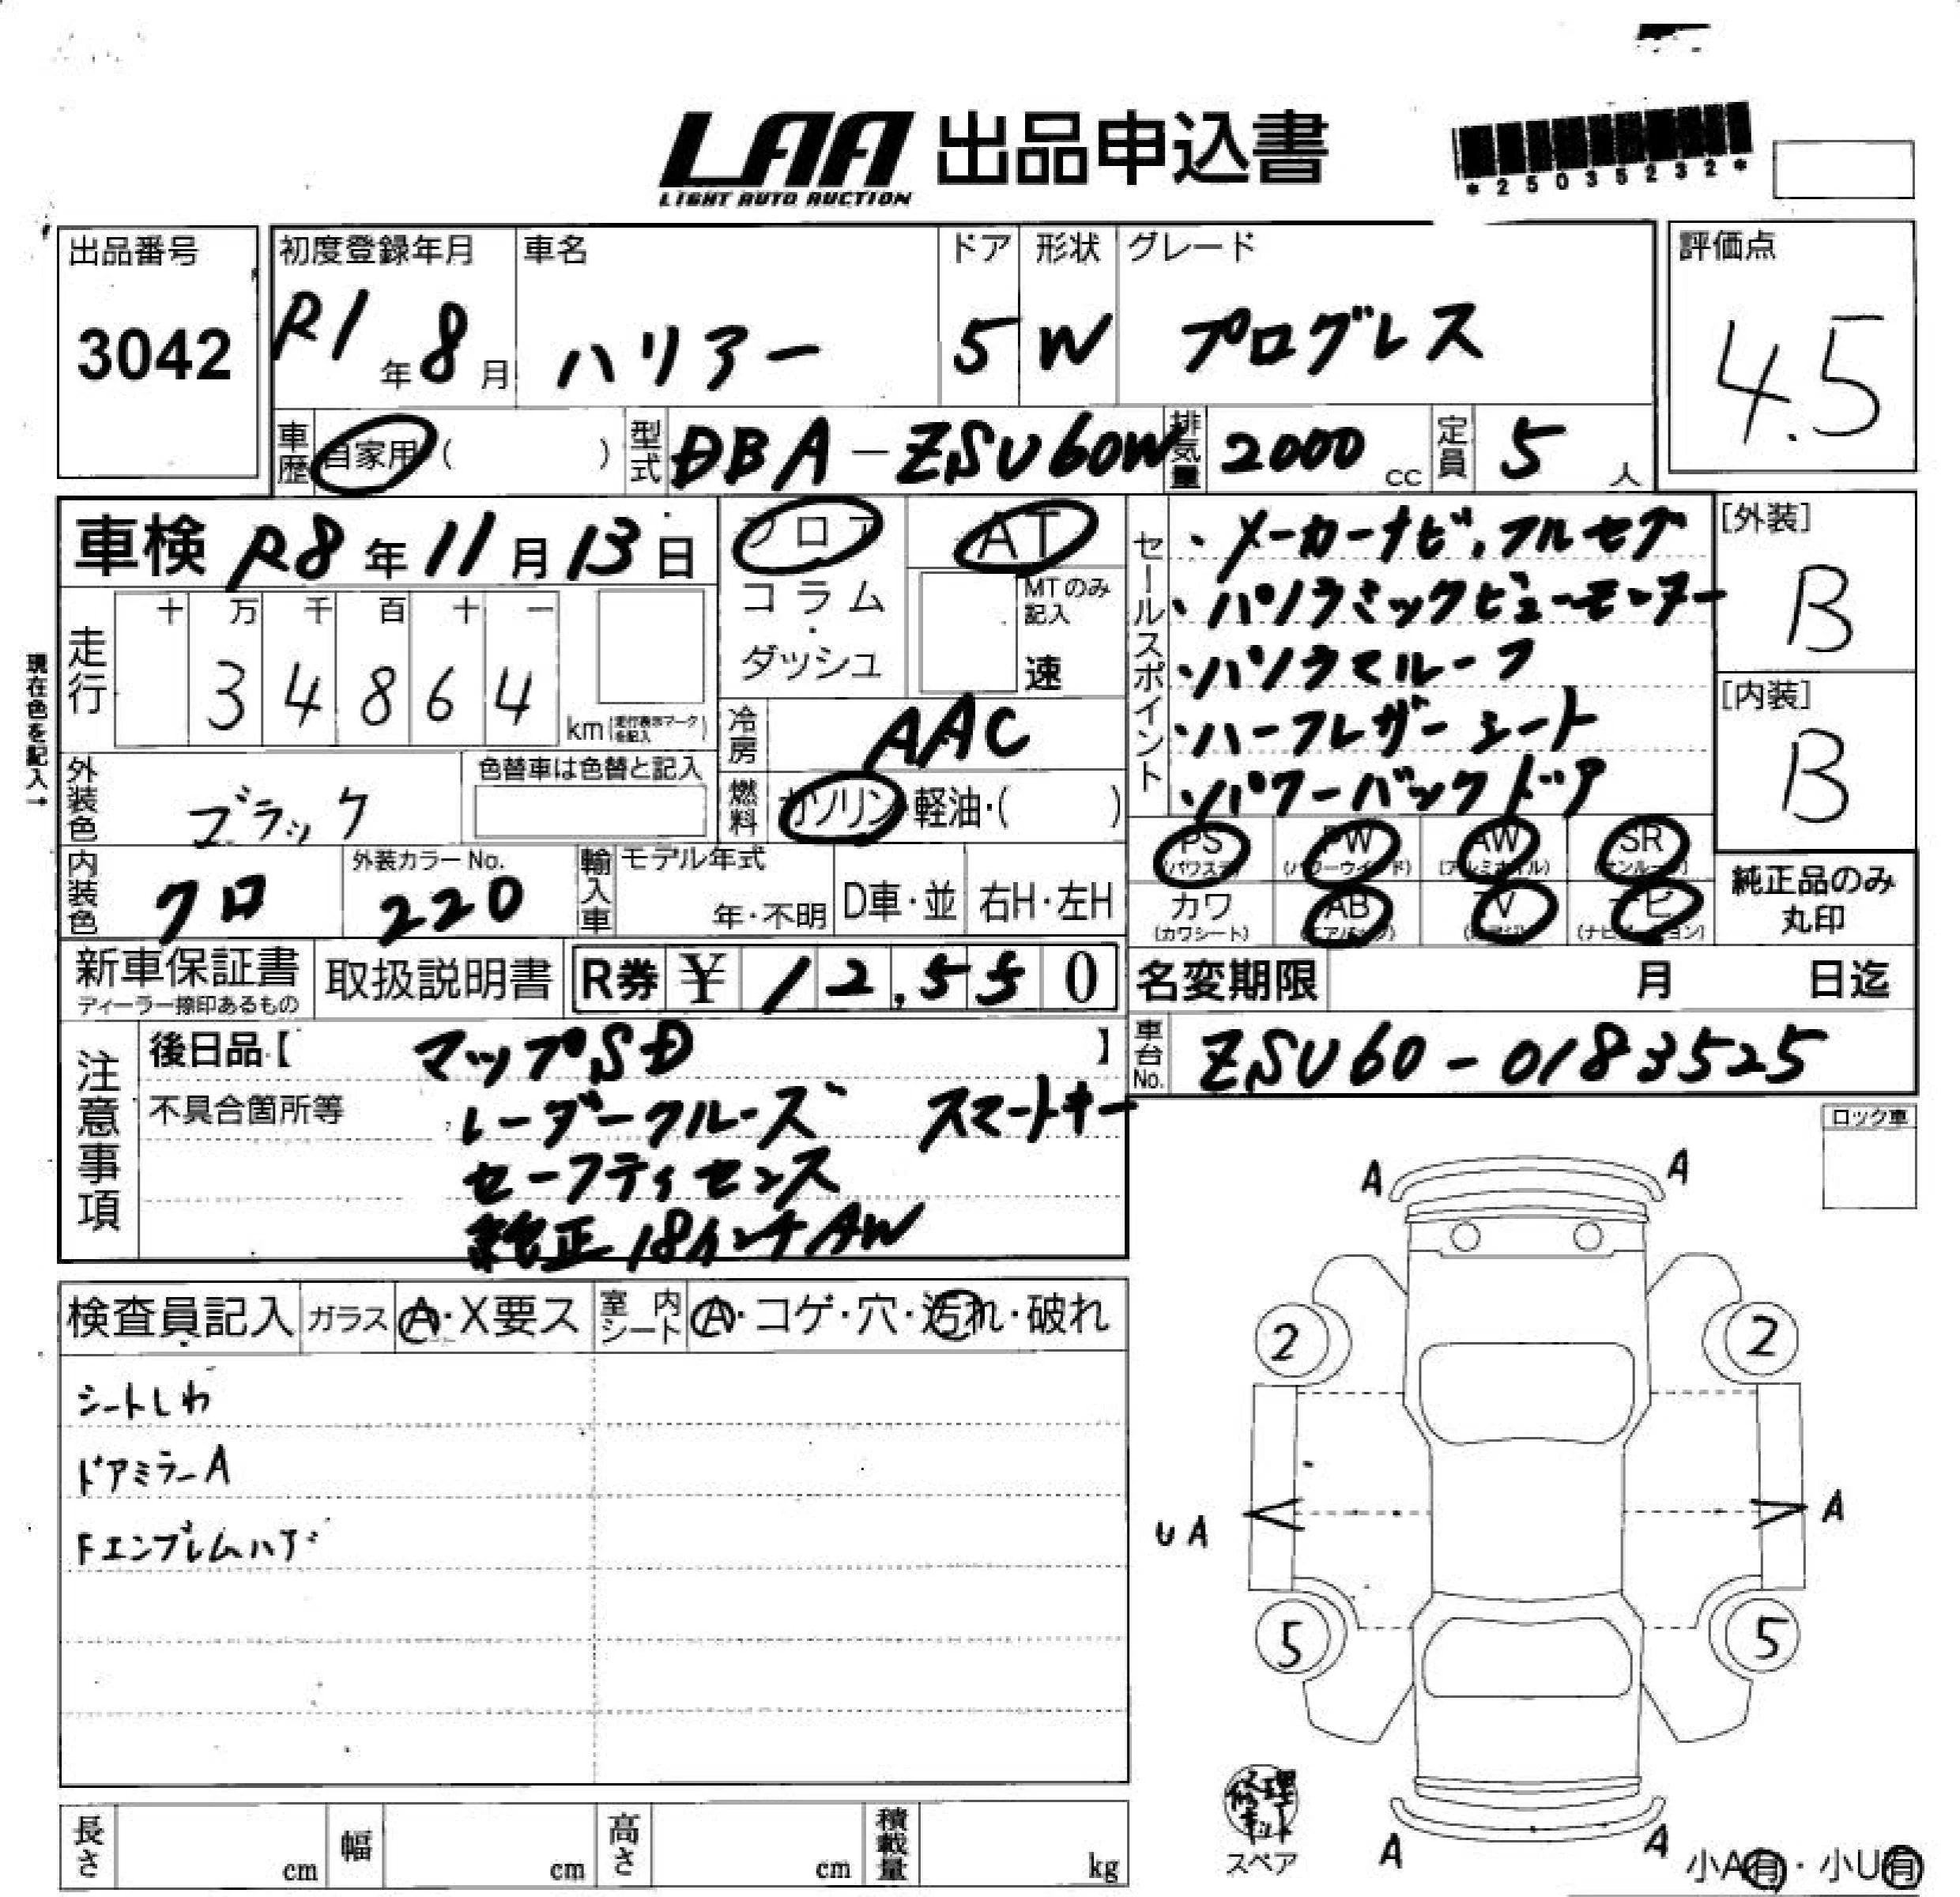 LAA 出品申込書
LIGHT AUTO AUCTION
*25035232*
出品番号 初度登録年月 車名 ドア 形状 グレード 評価点
3042 R1年 8月 ハリアー 5 W プログレス 4.5
車歴 自家用 ( ) 型式 DBA-ZSU60W 排気量 2000 cc 定員 5 人
車検 R8年 11月 13日 フロア AT セールスポイント ・メーカーナビ,フルセグ [外装]
コラム MTのみ記入 ・パノラミックビューモニター B
走行 十 万 千 百 十 一 ダッシュ 速 ・パノラマルーフ [内装]
3 4 8 6 4 km (走行表示マークを記入) 冷房 AAC ・ハーフレザーシート B
現在色を記入→
外装色 ブラック 色替車は色替と記入 燃料 ガソリン・軽油・( ) ・パワーバックドア
PS (パワステ) PW (パワーウインド) AW (アルミホイル) SR (サンルーフ) 純正品のみ丸印
内装色 クロ 外装カラーNo. 220 輸入車 モデル年式 年・不明 D車・並 右H・左H カワ (カワシート) AB (エアバッグ) TV ナビ (ナビゲーション)
新車保証書 取扱説明書 R券 ¥ 12,550 名変期限 月 日迄
ディーラー捺印あるもの
注意事項 後日品【 マップSD 】 車台No. ZSU60-0183525
不具合箇所等 レーダークルーズ スマートキー ロック車
セーフティセンス
純正18インチAW
検査員記入 ガラス A・X要ス 室内シート A・コゲ・穴・汚れ・破れ
シートしわ
ドアミラーA
Fエンブレムハゲ
A A
2 2
UA A
5 5
修理キット
スペア
A A
小A有・小U有
長さ cm 幅 cm 高さ cm 積載量 kg